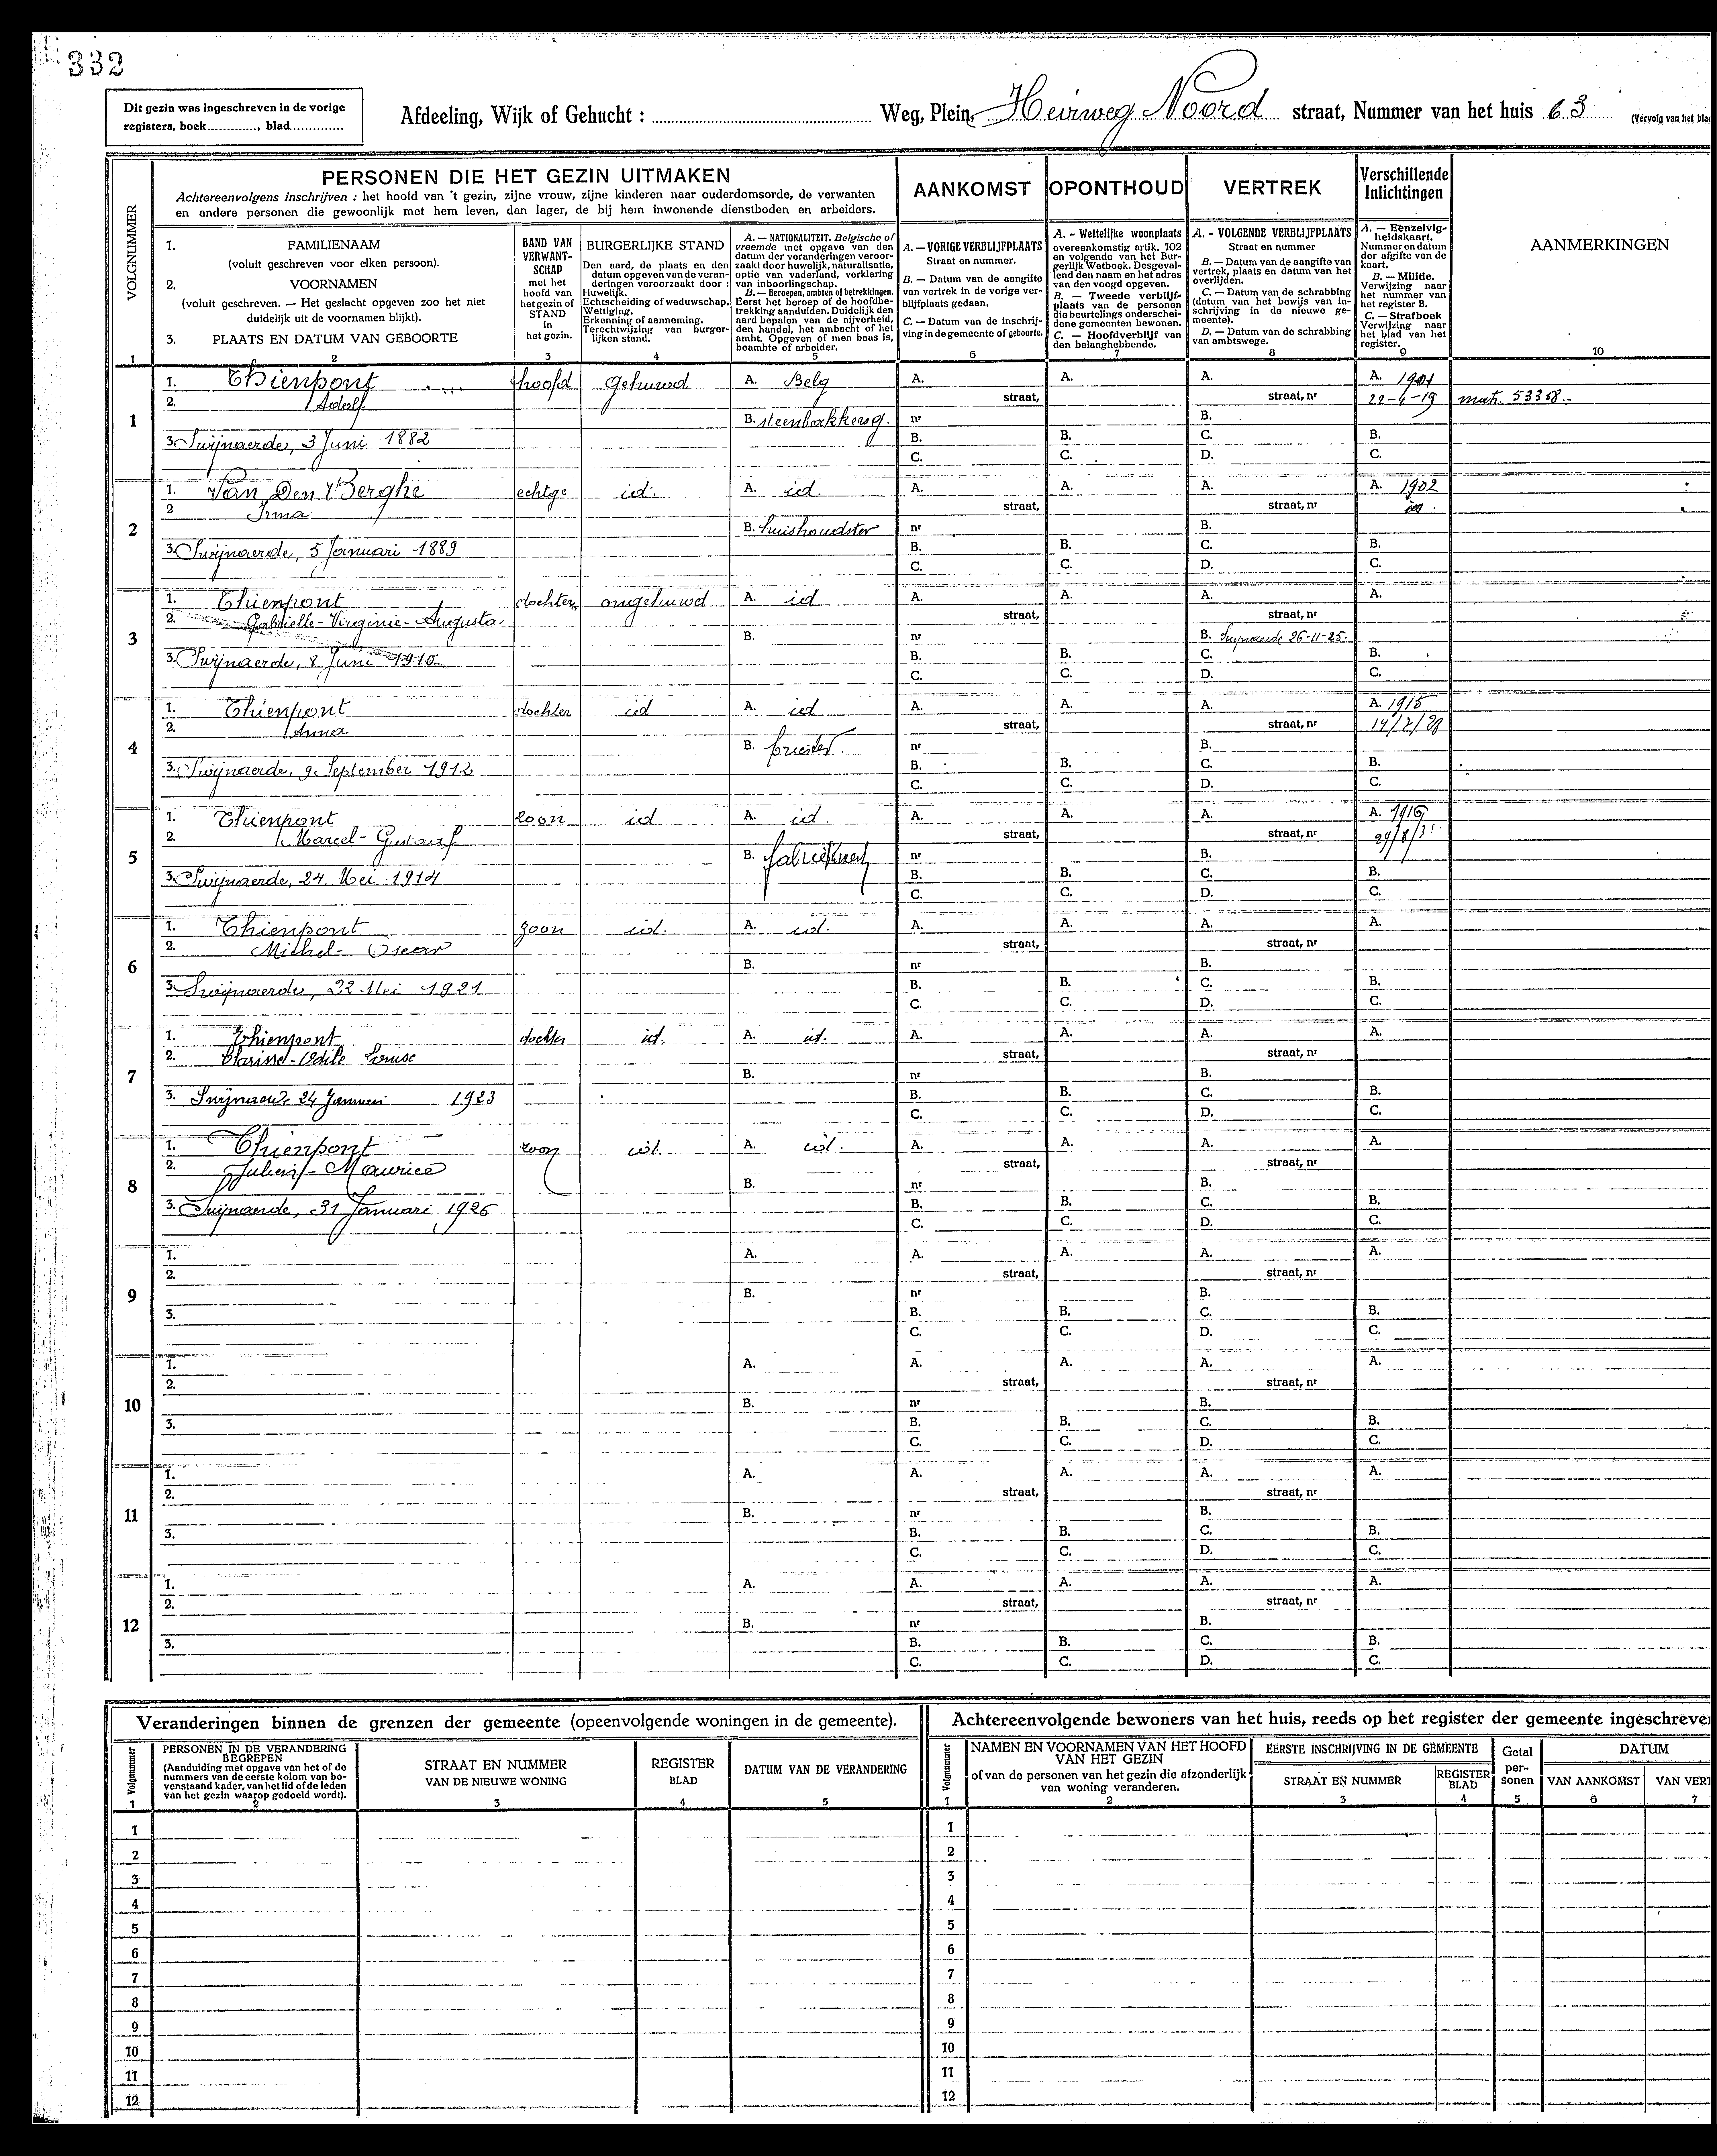 332
Dit gezin was ingeschreven in de vorige
registers, boek............., blad..............
Afdeeling, Wijk of Gehucht : ............ Weg, Plein, Heirweg Noord straat, Nummer van het huis 63 (Vervolg van het bla
VOLGNUMMER
PERSONEN DIE HET GEZIN UITMAKEN
Achtereenvolgens inschrijven : het hoofd van 't gezin, zijne vrouw, zijne kinderen naar ouderdomsorde, de verwanten
en andere personen die gewoonlijk met hem leven, dan lager, de bij hem inwonende dienstboden en arbeiders.
AANKOMST
OPONTHOUD
VERTREK
Verschillende
Inlichtingen
AANMERKINGEN
1. FAMILIENAAM
(voluit geschreven voor elken persoon).
2. VOORNAMEN
(voluit geschreven. — Het geslacht opgeven zoo het niet
duidelijk uit de voornamen blijkt).
3. PLAATS EN DATUM VAN GEBOORTE
BAND VAN
VERWANT-
SCHAP
met het
hoofd van
het gezin of
STAND
in
het gezin.
BURGERLIJKE STAND
Den aard, de plaats en den
datum opgeven van de veran-
deringen veroorzaakt door :
Huwelijk.
Echtscheiding of weduwschap.
Wettiging.
Erkenning of aanneming.
Terechtwijzing van burger-
lijken stand.
A. — NATIONALITEIT. Belgische of
vreemde met opgave van den
datum der veranderingen veroor-
zaakt door huwelijk, naturalisatie,
optie van vaderland, verklaring
van inboorlingschap.
B. — Beroepen, ambten of betrekkingen.
Eerst het beroep of de hoofdbe-
trekking aanduiden. Duidelijk den
aard bepalen van de nijverheid,
den handel, het ambacht of het
ambt. Opgeven of men baas is,
beambte of arbeider.
A. — VORIGE VERBLIJFPLAATS
Straat en nummer.
B. — Datum van de aangifte
van vertrek in de vorige ver-
blijfplaats gedaan.
C. — Datum van de inschrij-
ving in de gemeente of geboorte.
A. - Wettelijke woonplaats
overeenkomstig artik. 102
en volgende van het Bur-
gerlijk Wetboek. Desgeval-
lend den naam en het adres
van den voogd opgeven.
B. — Tweede verblijf-
plaats van de personen
die beurtelings onderschei-
dene gemeenten bewonen.
C. — Hoofdverblijf van
den belanghebbende.
A. - VOLGENDE VERBLIJFPLAATS
Straat en nummer
B. — Datum van de aangifte van
vertrek, plaats en datum van het
overlijden.
C. — Datum van de schrabbing
(datum van het bewijs van in-
schrijving in de nieuwe ge-
meente).
D. — Datum van de schrabbing
van ambtswege.
A. — Eenzelvig-
heidskaart.
Nummer en datum
der afgifte van de
kaart.
B. — Militie.
Verwijzing naar
het nummer van
het register B.
C. — Strafboek
Verwijzing naar
het blad van het
register.
1 2 3 4 5 6 7 8 9 10
1. Thienpont hoofd gehuwd A. Belg A. A. A. A. 1901
2. Adolf straat, straat, nr 22-4-19 53358.-
1 B. steenbakkersg. nr B.
3. Swijnaerde, 3 Juni 1882 B. B. C. B.
C. C. D. C.
1. Van Den Berghe echtge id. A. id. A. A. A. A. 1902
2 Irma straat, straat, nr
2 B. huishoudster nr B.
3. Swijnaerde, 5 Januari 1889 B. B. C. B.
C. C. D. C.
1. Thienpont dochter ongehuwd A. id A. A. A. A.
2. Gabrielle-Virginie-Augusta. straat, straat, nr
3 B. nr B. Swijnaerde 26-11-25.
3. Swijnaerde, 8 Juni 1910 B. B. C. B.
C. C. D. C.
1. Thienpont dochter id A. id A. A. A. A. 1915
2. Anna straat, straat, nr
4 B. nr B.
3. Swijnaerde, 9 September 1912 B. B. C. B.
C. C. D. C.
1. Thienpont zoon id A. id. A. A. A. A.
2. Marcel-Gustaaf straat, straat, nr
5 B. nr B.
3. Swijnaerde, 24 Mei 1914 B. B. C. B.
C. C. D. C.
1. Thienpont zoon id. A. id. A. A. A. A.
2. Michel-Oscar straat, straat, nr
6 B. nr B.
3. Swijnaerde, 22 Mei 1921 B. B. C. B.
C. C. D. C.
1. Thienpont dochter id. A. id. A. A. A. A.
2. Clarisse-Odile Louise straat, straat, nr
7 B. nr B.
3. Swijnaerde 24 Januari 1923 B. B. C. B.
C. C. D. C.
1. Thienpont zoon id. A. id. A. A. A. A.
2. Julien-Maurice straat, straat, nr
8 B. nr B.
3. Swijnaerde, 31 Januari 1926 B. B. C. B.
C. C. D. C.
1. A. A. A. A. A.
2. straat, straat, nr
9 B. nr B.
3. B. B. C. B.
C. C. D. C.
1. A. A. A. A. A.
2. straat, straat, nr
10 B. nr B.
3. B. B. C. B.
C. C. D. C.
1. A. A. A. A. A.
2. straat, straat, nr
11 B. nr B.
3. B. B. C. B.
C. C. D. C.
1. A. A. A. A. A.
2. straat, straat, nr
12 B. nr B.
3. B. B. C. B.
C. C. D. C.
Veranderingen binnen de grenzen der gemeente (opeenvolgende woningen in de gemeente).
Volgnummer
PERSONEN IN DE VERANDERING
BEGREPEN
(Aanduiding met opgave van het of de
nummers van de eerste kolom van bo-
venstaand kader, van het lid of de leden
van het gezin waarop gedoeld wordt).
STRAAT EN NUMMER
VAN DE NIEUWE WONING
REGISTER
BLAD
DATUM VAN DE VERANDERING
1 2 3 4 5
1
2
3
4
5
6
7
8
9
10
11
12
Achtereenvolgende bewoners van het huis, reeds op het register der gemeente ingeschreve
Volgnummer
NAMEN EN VOORNAMEN VAN HET HOOFD
VAN HET GEZIN
of van de personen van het gezin die afzonderlijk
van woning veranderen.
EERSTE INSCHRIJVING IN DE GEMEENTE
STRAAT EN NUMMER
REGISTER
BLAD
Getal
per-
sonen
DATUM
VAN AANKOMST
VAN VERT
1 2 3 4 5 6 7
1
2
3
4
5
6
7
8
9
10
11
12